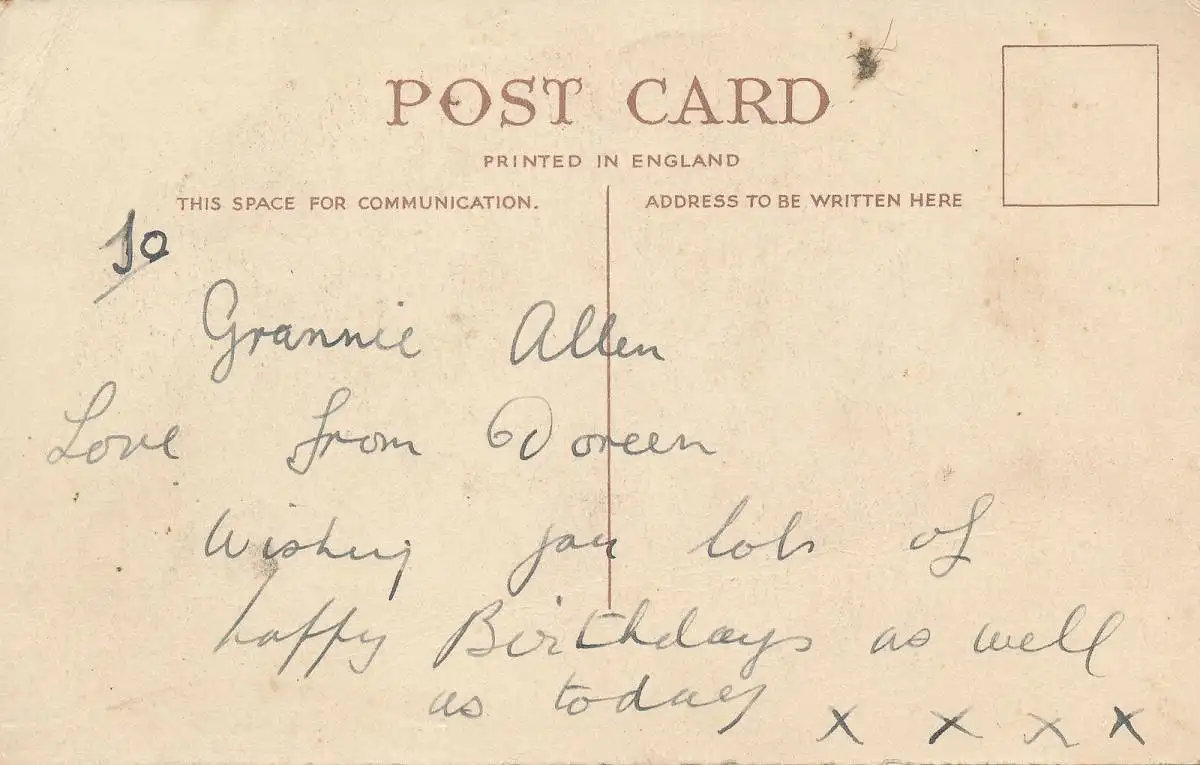 POST CARD
PRINTED IN ENGLAND
THIS SPACE FOR COMMUNICATION.
ADDRESS TO BE WRITTEN HERE
To
Grannie Allen
Love from Doreen
Wishing you lots of
happy Birthdays as well
as today x x x x